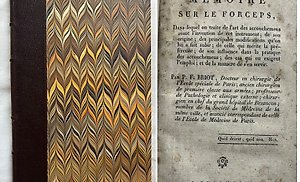 MÉMOIRE
SUR LE FORCEPS,
Dans lequel on traite de l'art des accouchemens
avant l'invention de cet instrument; de son
origine; des principales modifications qu'on
lui a fait subir; de celle qui mérite la préfé-
rence; de son influence dans la pratique
des accouchemens; des cas qui en exigent
l'emploi; et de la manière de s'en servir.
PAR P. F. BRIOT, Docteur en chirurgie de
l'École spéciale de Paris; ancien chirurgien
de première classe aux armées; professeur
de Pathologie et clinique externe; chirurgien
en chef du grand hôpital de Besançon;
membre de la Société de Médecine de la
même ville, et associé correspondant de celle
de l'École de Médecine de Paris.
Quid deceat, quid non. HOR.